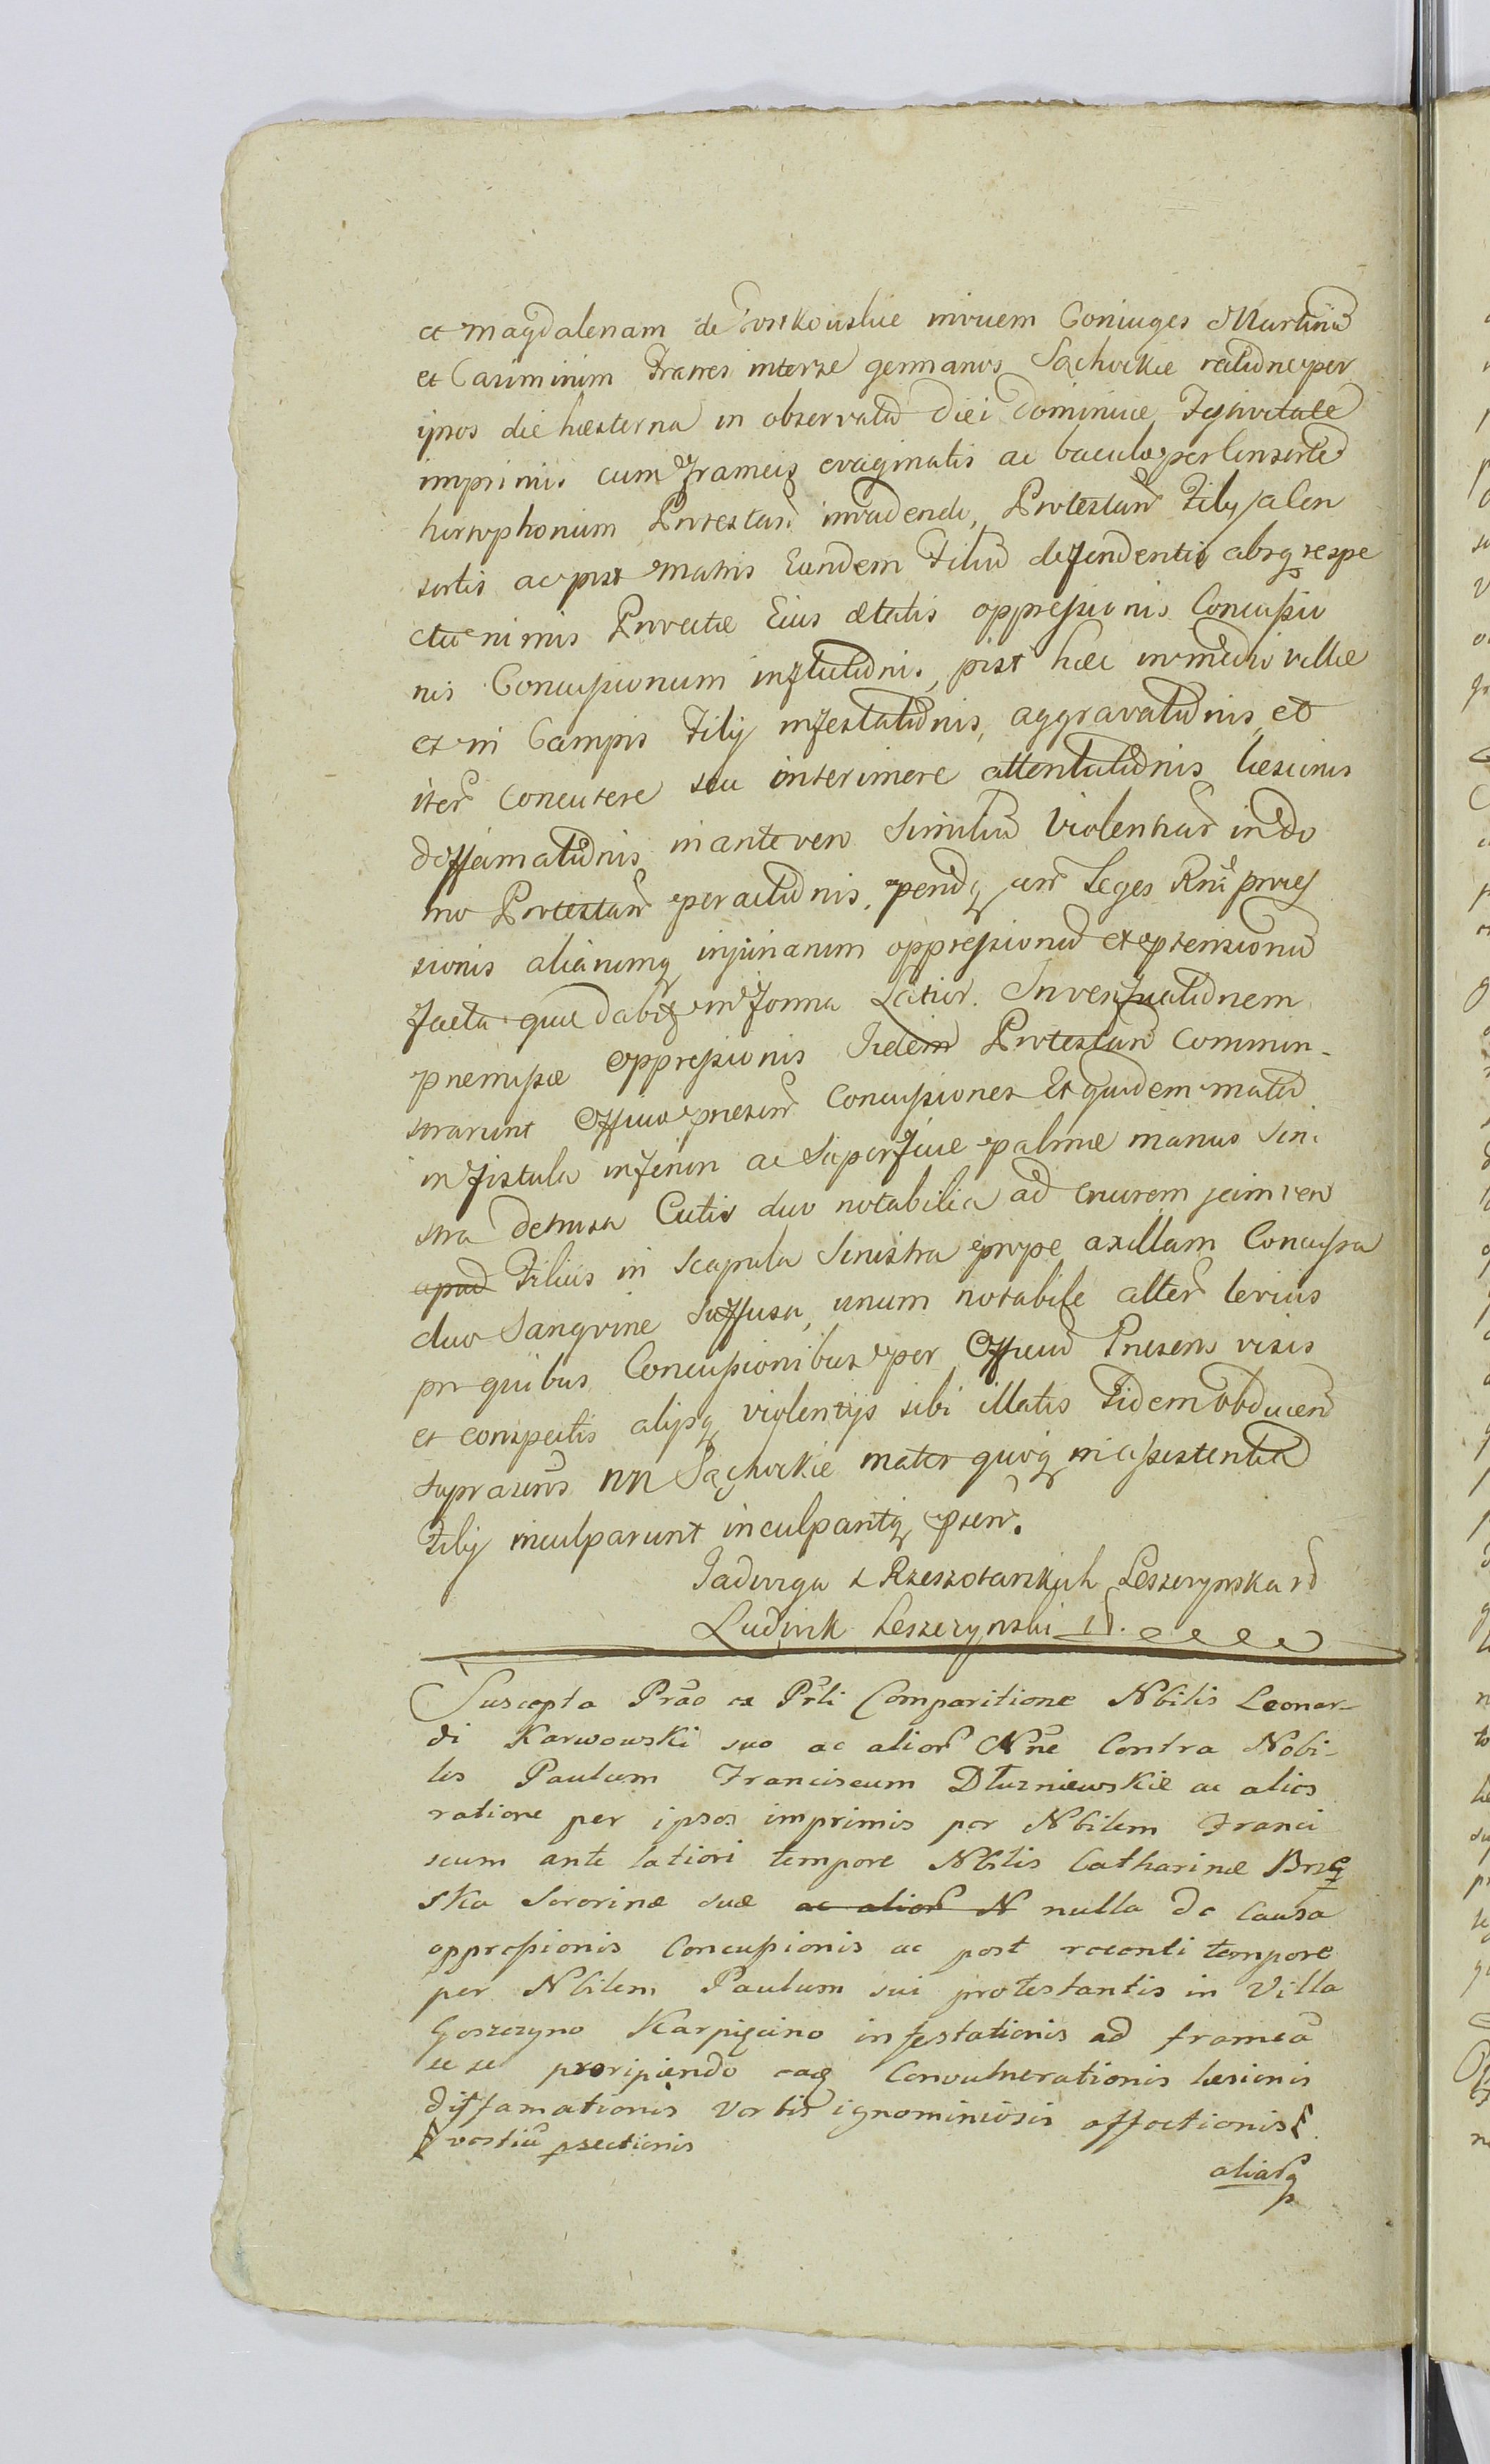 et Magdalenam de Gostkowskie invicem Coniuges Martinũ
et Casimirum Fratres inter se germanos Sąchockie ratiõne per
ipsos die hesterna in observatũ diei Dominicæ Festivitate
imprimis cum Frameis evaginatis ac baculo per
Protestañ invadendi, Protestañ Filij
ac post Matris Eundem Filiũ defendentis absq respe
ctu nimis Provectæ Eius ætatis oppressionis Concussio
nis Concussionum inflictiõnis, post hæc in medio villæ
et in Campis Filij infestatiõnis, aggravatiõnis, et
iter̃ Concutere seu interimere attentatiõnis læsionis
diffamatiõnis in ante vero Similiũ Violentiar̃ in Do
mo Protestañ peractiõnis, pœnãq cur̃ Leges Rni
sionis aliarumq injuriarum oppressionũ et prensionũ
facta quæ dabit in Forma Latior. In verificatiõnem
præmissæ oppressionis Iidem Protestañ Common-
strarunt Officio præseñ Concussiones Et quidem mater̃
in fistula inferiori ac Superficie palmæ manus Sini
stra detrusa Cutis duo notabilia ad cruorem jam vero
apud Filius in Scapula Sinistra prope axillam Concussa
duo Sangvine Suffusa, unum notabile alter̃ levius
pr quibus Concussionibus per Officiũ Præsens visis
et conspectis alijsq violentijs sibi illatis Fidem obducen̄
supra nn Sąchockie mater quoq in assistentia
Filij inculparunt inculpantq præseñ.
Jadwiga z Rzeszotarskich Leszczynska
Ludwik Leszczynski
Suscepta Prão ex Prti Comparitione Nbilis Leonar-
di Karwowski suo ac alior̃ Nñe Contra Nobi-
les Paulum Franciscum Dłuzniewskie ac alios
ratione per ipsos imprimis per Nbilem Franci
scum ante latiori tempore Nbilis Catharinæ Brzo
ska Sororinæ suæ ac alior̃ N nulla de Causa
oppressionis Concussionis ac post recenti tempore
per Nbilem Paulum sui protestantis in Villa
Goszczyno Karpięcino infestationis ad frameã
se se proripiendo eaq Convulnerationis læsionis
diffamationis Verbis ignominiosis affectionis
vestiũ psectionis
aliar̃q